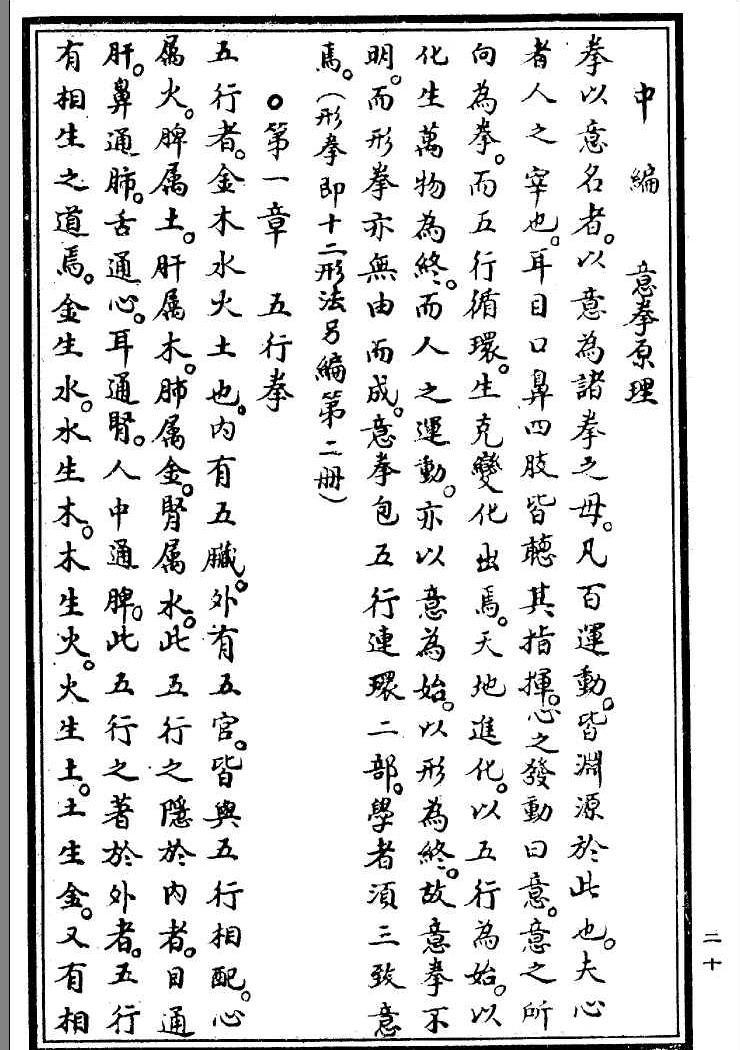 中編　意拳原理
拳以意名者。以意為諸拳之母。凡百運動。皆淵源於此也。夫心
者人之宰也。耳目口鼻四肢皆聽其指揮。心之發動曰意。意之所
向為拳。而五行循環。生克變化出焉。天地進化。以五行為始。以
化生萬物為終。而人之運動。亦以意為始。以形為終。故意拳不
明。而形拳亦無由而成。意拳包五行連環二部。學者須三致意
焉。（形拳即十二形法另編第二册）
○第一章　五行拳
五行者。金木水火土也。内有五臟。外有五官。皆與五行相配。心
属火。脾属土。肝属木。肺属金。腎属水。此五行之隱於内者。目通
肝。鼻通肺。舌通心。耳通腎。人中通脾。此五行之著於外者。五行
有相生之道焉。金生水。水生木。木生火。火生土。土生金。又有相
二十